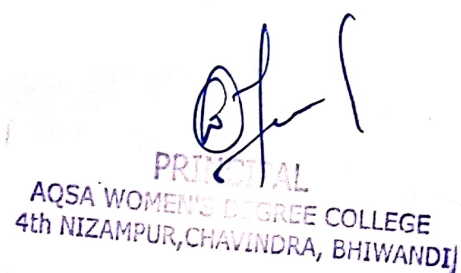 PRINCIPAL
AQSA WOMEN'S DEGREE COLLEGE
4th NIZAMPUR,CHAVINDRA, BHIWANDI